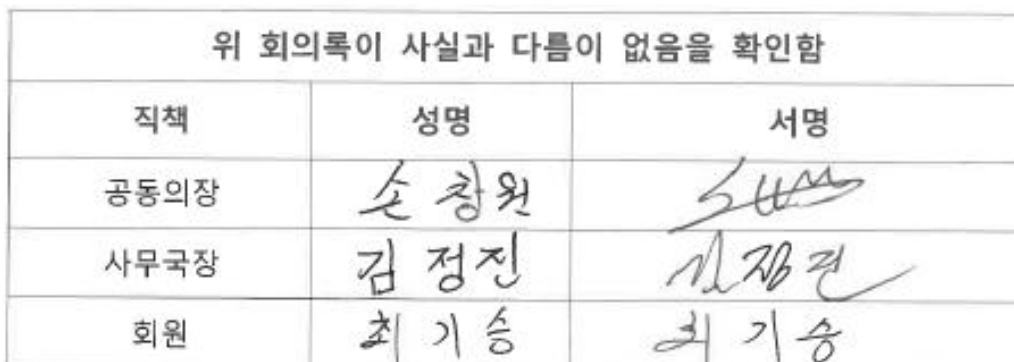 위 회의록이 사실과 다름이 없음을 확인함
직책 성명 서명
공동의장 손창원
사무국장 김정진 김정진
회원 최기승 최기승